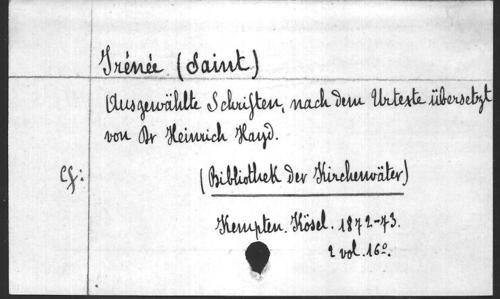 Irénée (Saint)
Ausgewählte Schriften, nach dem Urtexte übersetzt
von Dr Heinrich Hayd.
cf:
(Bibliothek der Kirchenväter)
Kempten. Kösel. 1872-73.
2 vol. 16º.